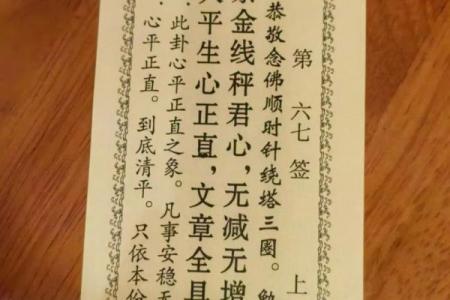 第六七签 上
恭敬念佛顺时针绕塔三圈。
条金线秤君心，无减无增
人平生心正直，文章全具
：此卦心平正直之象。凡事安稳无
：心平正直。到底清平。只依本份